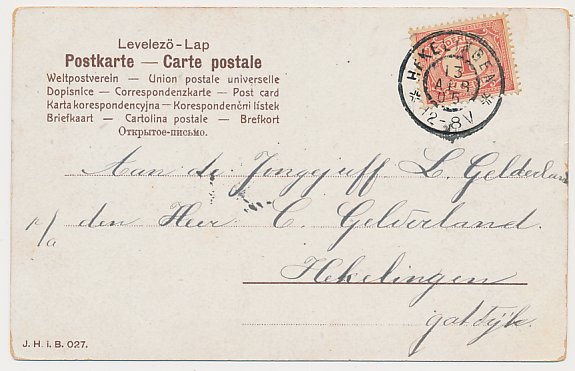 Levelező-Lap
Postkarte — Carte postale
Weltpostverein — Union postale universelle
Dopisnice — Correspondenzkarte — Post card
Karta korespondencyjna — Korespondenční lístek
Briefkaart — Cartolina postale — Brefkort
Открытое-письмо.
HEKELINGEN
13
APR
05
12-8V
Aan de Jongejuff L. Gelderland
p/a den Heer C. Gelderland.
Hekelingen
gatdijk.
J. H. i. B. 027.